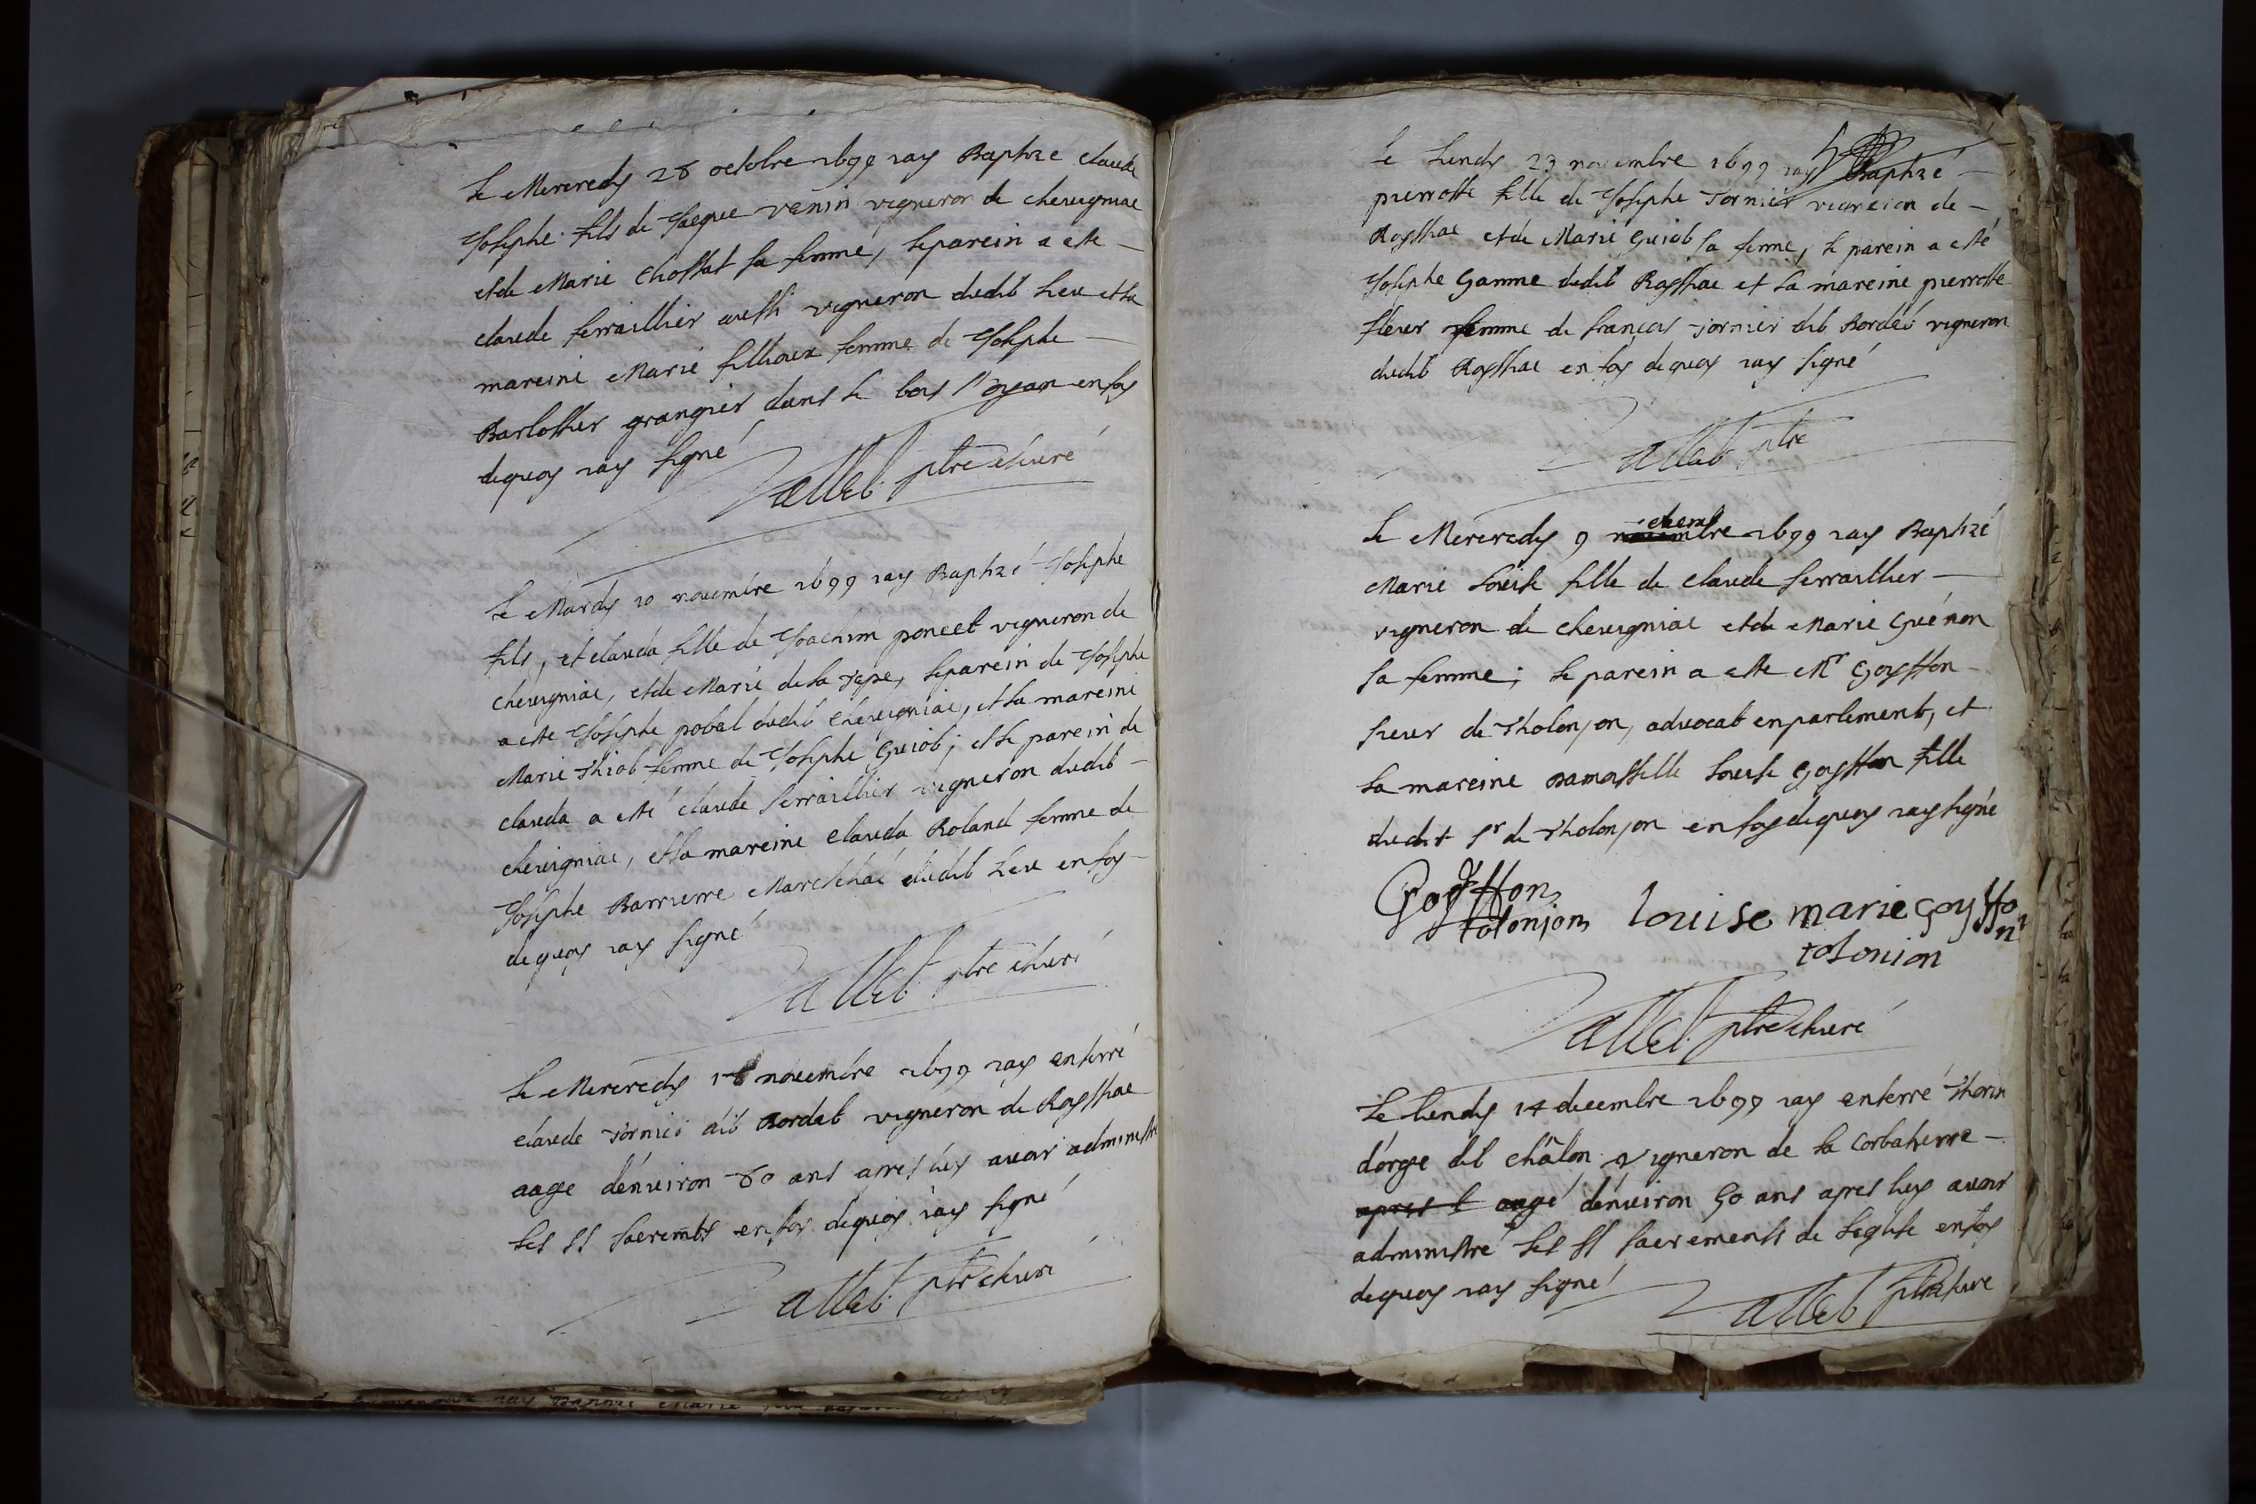 Le Mercredy 28 octobre 1699 iay Baptize claude
Josephe fils de Jaque venin vigneron de cheuigniac
et de Marie Chossat sa femme, le parein a este
claude ferraillier aussi vigneron dudit lieu et la
mareine Marie fillioux femme de Josephe
Barlottier grangier dans le bois l'ogean en foy
dequoy iay signé
Vallet ptre et curé
Le Mardy 10 nouembre 1699 iay Baptizé Josephe
fils, et clauda fille de Joachim poncet vigneron de
cheuigniac, et de Marie de la , le parein de Josephe
a este Josephe pobel dudit cheuigniac, et la mareine
Marie thiob femme de Josephe Guiob; et le parein de
clauda a esté claude ferraillier vigneron dudit
cheuigniac, et la mareine clauda Roland femme de
Josephe Barrierre Mareschal dudit lieu en foy
dequoy iay signé
Vallet ptre et curé
Le Mercredy 18 nouembre 1699 iay enterré
claude Tornier dit Bordet vigneron de Roysshac
aage d'enuiron 80 ans apres luy auoir administré
les SS sacremts en foy dequoy iay signé
Vallet ptre et curé
le Lundy 23 nouembre 1699 iay Baptzé
pierrotte fille de Josephe Tornier vigneron de
Roysshac et de Marie Guiob sa femme, le parein a esté
Josephe Gamme dudit Roysshac et la mareine pierrotte
fleur femme de françois Tornier dit Bordet vigneron
dudit Roysshac en foy dequoy iay signé
Vallet ptre
Le Mercredy 9 decembre 1699 iay Baptzé
Marie Louise fille de claude ferraillier
vigneron de cheuigniac et de Marie Guénon
sa femme; le parein a este Mr Goyffon
sieur de Tholonjon, aduocat en parlement, et
la mareine Damoiselle Louise Goyffon fille
dudit Sr de Tholonjon en foy dequoy iay signé
Goyffon
tolonjon louise marie goyffon
tolonion
Vallet ptre et curé
Le lundy 14 decembre 1699 iay enterré Thorin
d'orge dit châlon vigneron de la corbaterre
apres l aagé d'enuiron 50 ans apres luy auoir
administré les SS sacrements de leglise en foy
dequoy iay signé
Vallet ptre et cure